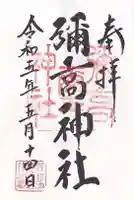 奉拝
彌高神社
令和五年五月十四日